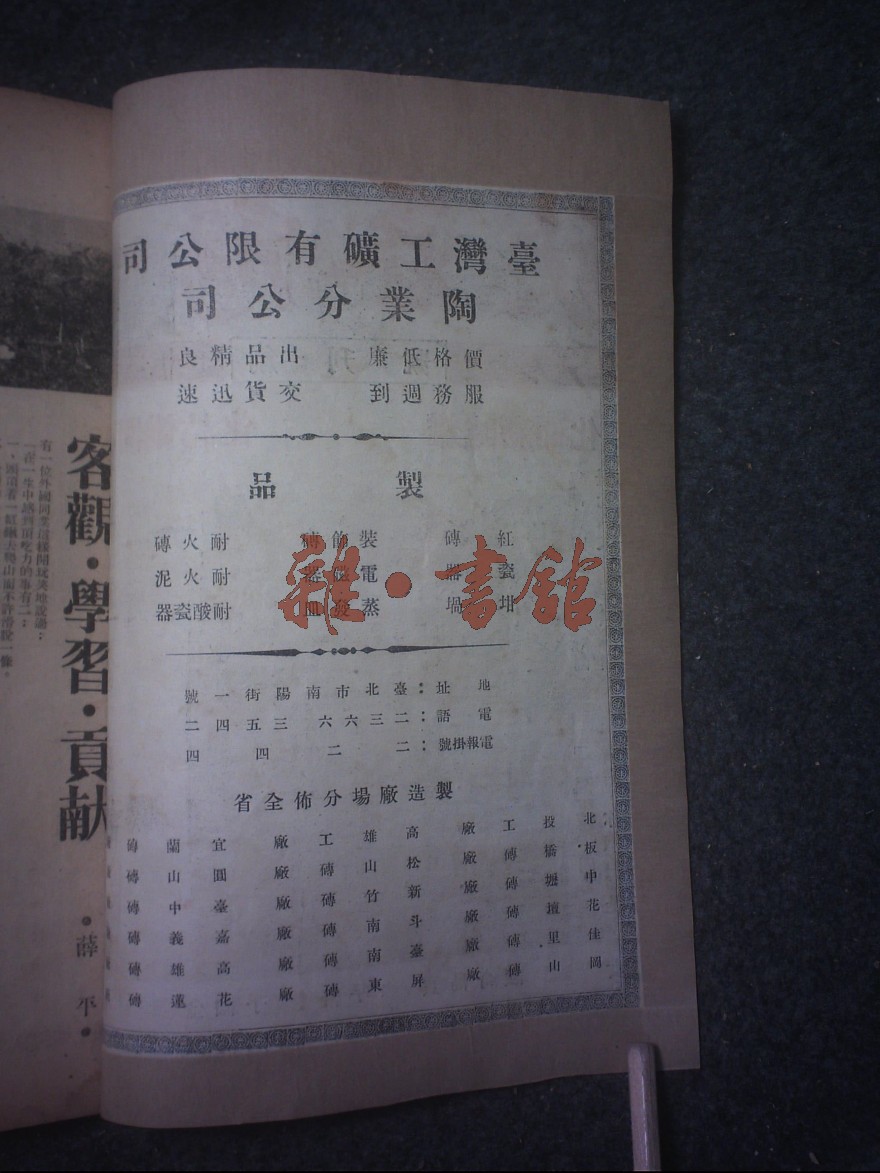 臺灣工礦有限公司
陶業分公司
價格低廉 出品精良
服務週到 交貨迅速
製品
紅磚 裝飾磚 耐火磚
瓷器 電磁器 耐火泥
坩堝 蒸發皿 耐酸瓷器
地址：臺北市南陽街一號
電話：二三六六三五四二
電報掛號：二二四四
製造廠場分佈全省
北投工廠 高雄工廠 宜蘭磚
板橋磚廠 松山磚廠 圓山磚
中壢磚廠 新竹磚廠 臺中磚
花壇磚廠 斗南磚廠 嘉義磚
佳里磚廠 臺南磚廠 高雄磚
岡山磚廠 屏東磚廠 花蓮磚
雜·書館
客觀·學習·貢献
·薛平·
有一位外國同業這樣開玩笑地說過：